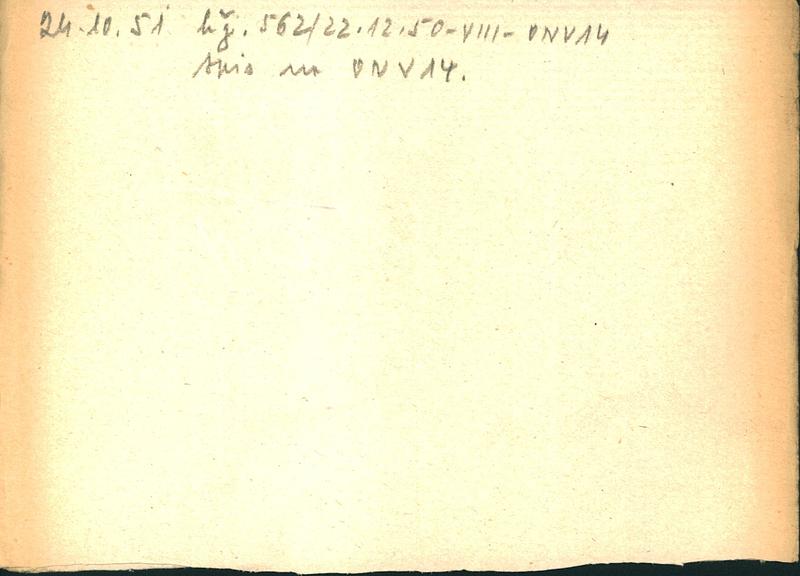 24.10.51 hž. 562/22.12.50-VIII-ONV14
spis na ONV14.